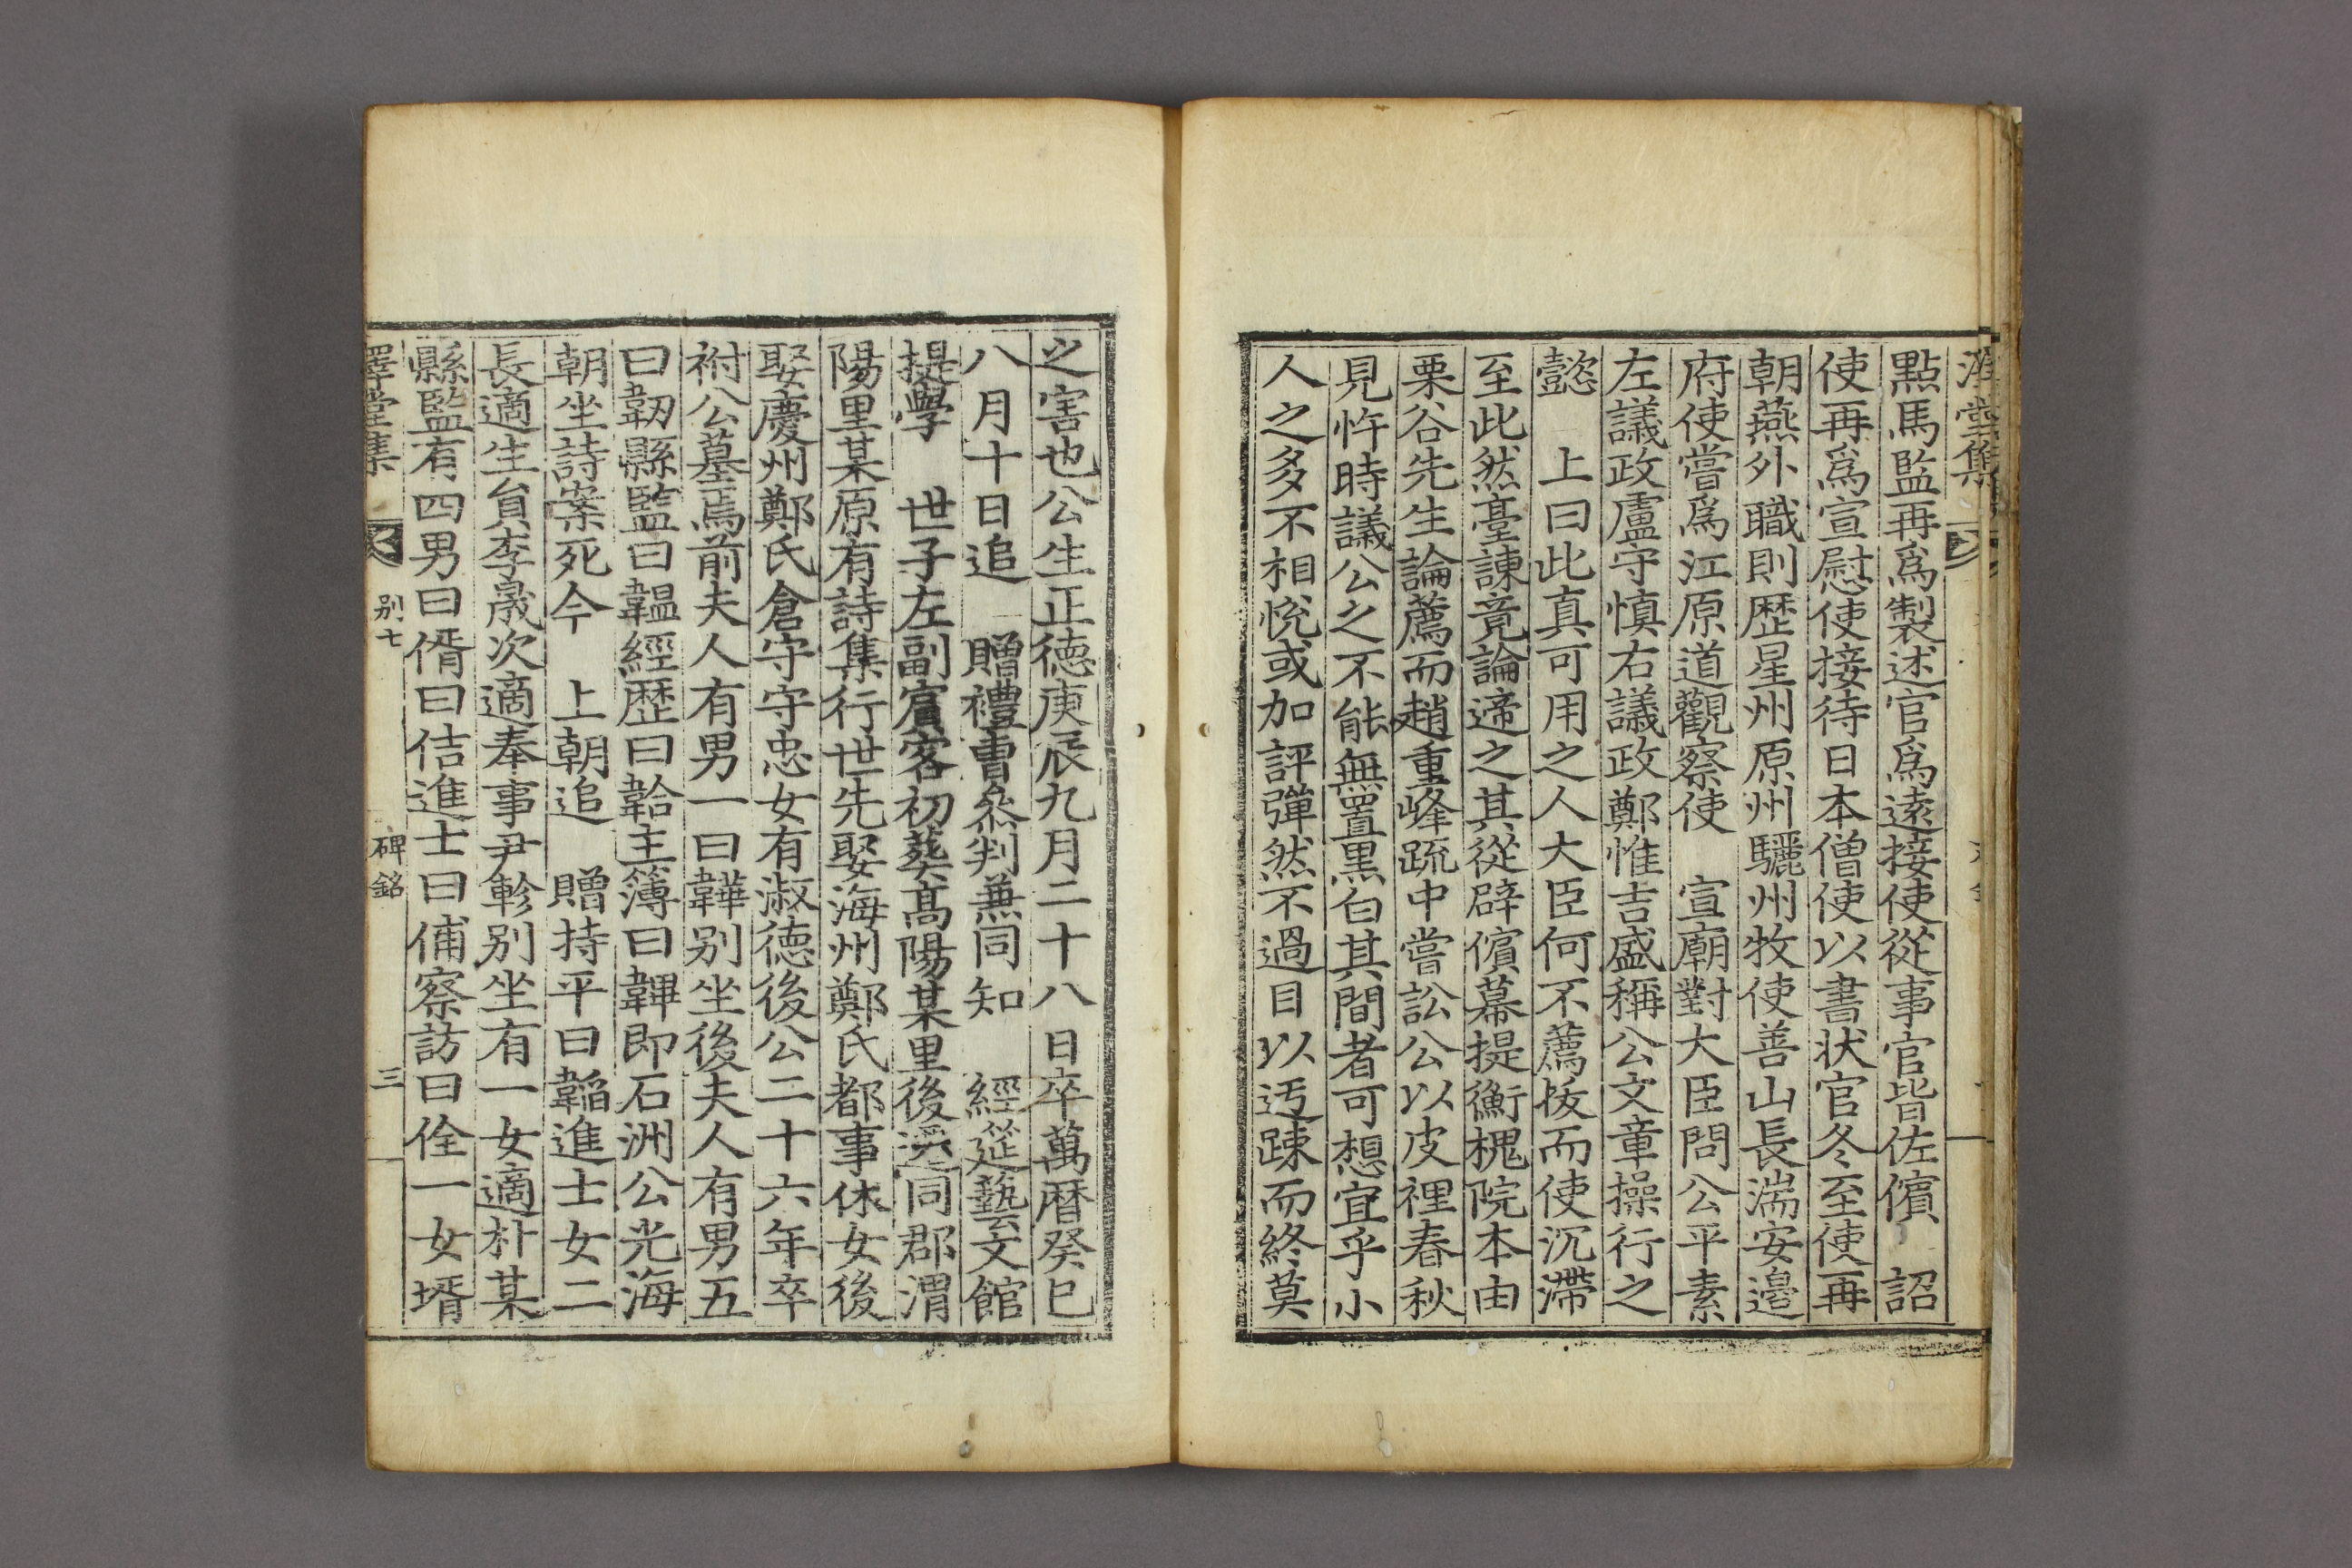 點馬監再爲製述官爲遠接使從事官皆佐儐 詔
使再爲宣慰使接待日本僧使以書狀官冬至使再
朝燕外職則歷星州原州驪州牧使善山長湍安邊
府使嘗爲江原道觀察使 宣廟對大臣問公平素
左議政盧守愼右議政鄭惟吉盛稱公文章操行之
懿 上曰此真可用之人大臣何不薦拔而使沉滯
至此然臺諫竟論遞之其從辟儐幕提衡槐院本由
栗谷先生論薦而趙重峰疏中嘗訟公以皮裡春秋
見忤時議公之不能無置黑白其間者可想宜乎小
人之多不相悅或加評彈然不過目以迃踈而終莫
之害也公生正德庚辰九月二十八日卒萬曆癸巳
八月十日追 贈禮曹叅判兼同知 經筵藝文館
提學 世子左副賓客初葬高陽某里後遷同郡渭
陽里某原有詩集行世先娶海州鄭氏都事休女後
娶慶州鄭氏倉守守忠女有淑德後公二十六年卒
祔公墓焉前夫人有男一曰韡別坐後夫人有男五
曰韌縣監曰韞經歷曰韐主簿曰韠即石洲公光海
朝坐詩案死今 上朝追 贈持平曰韜進士女二
長適生員李晟次適奉事尹軫別坐有一女適朴某
縣監有四男曰偦曰佶進士曰俌察訪曰佺一女壻
澤堂集
別七
碑銘
三